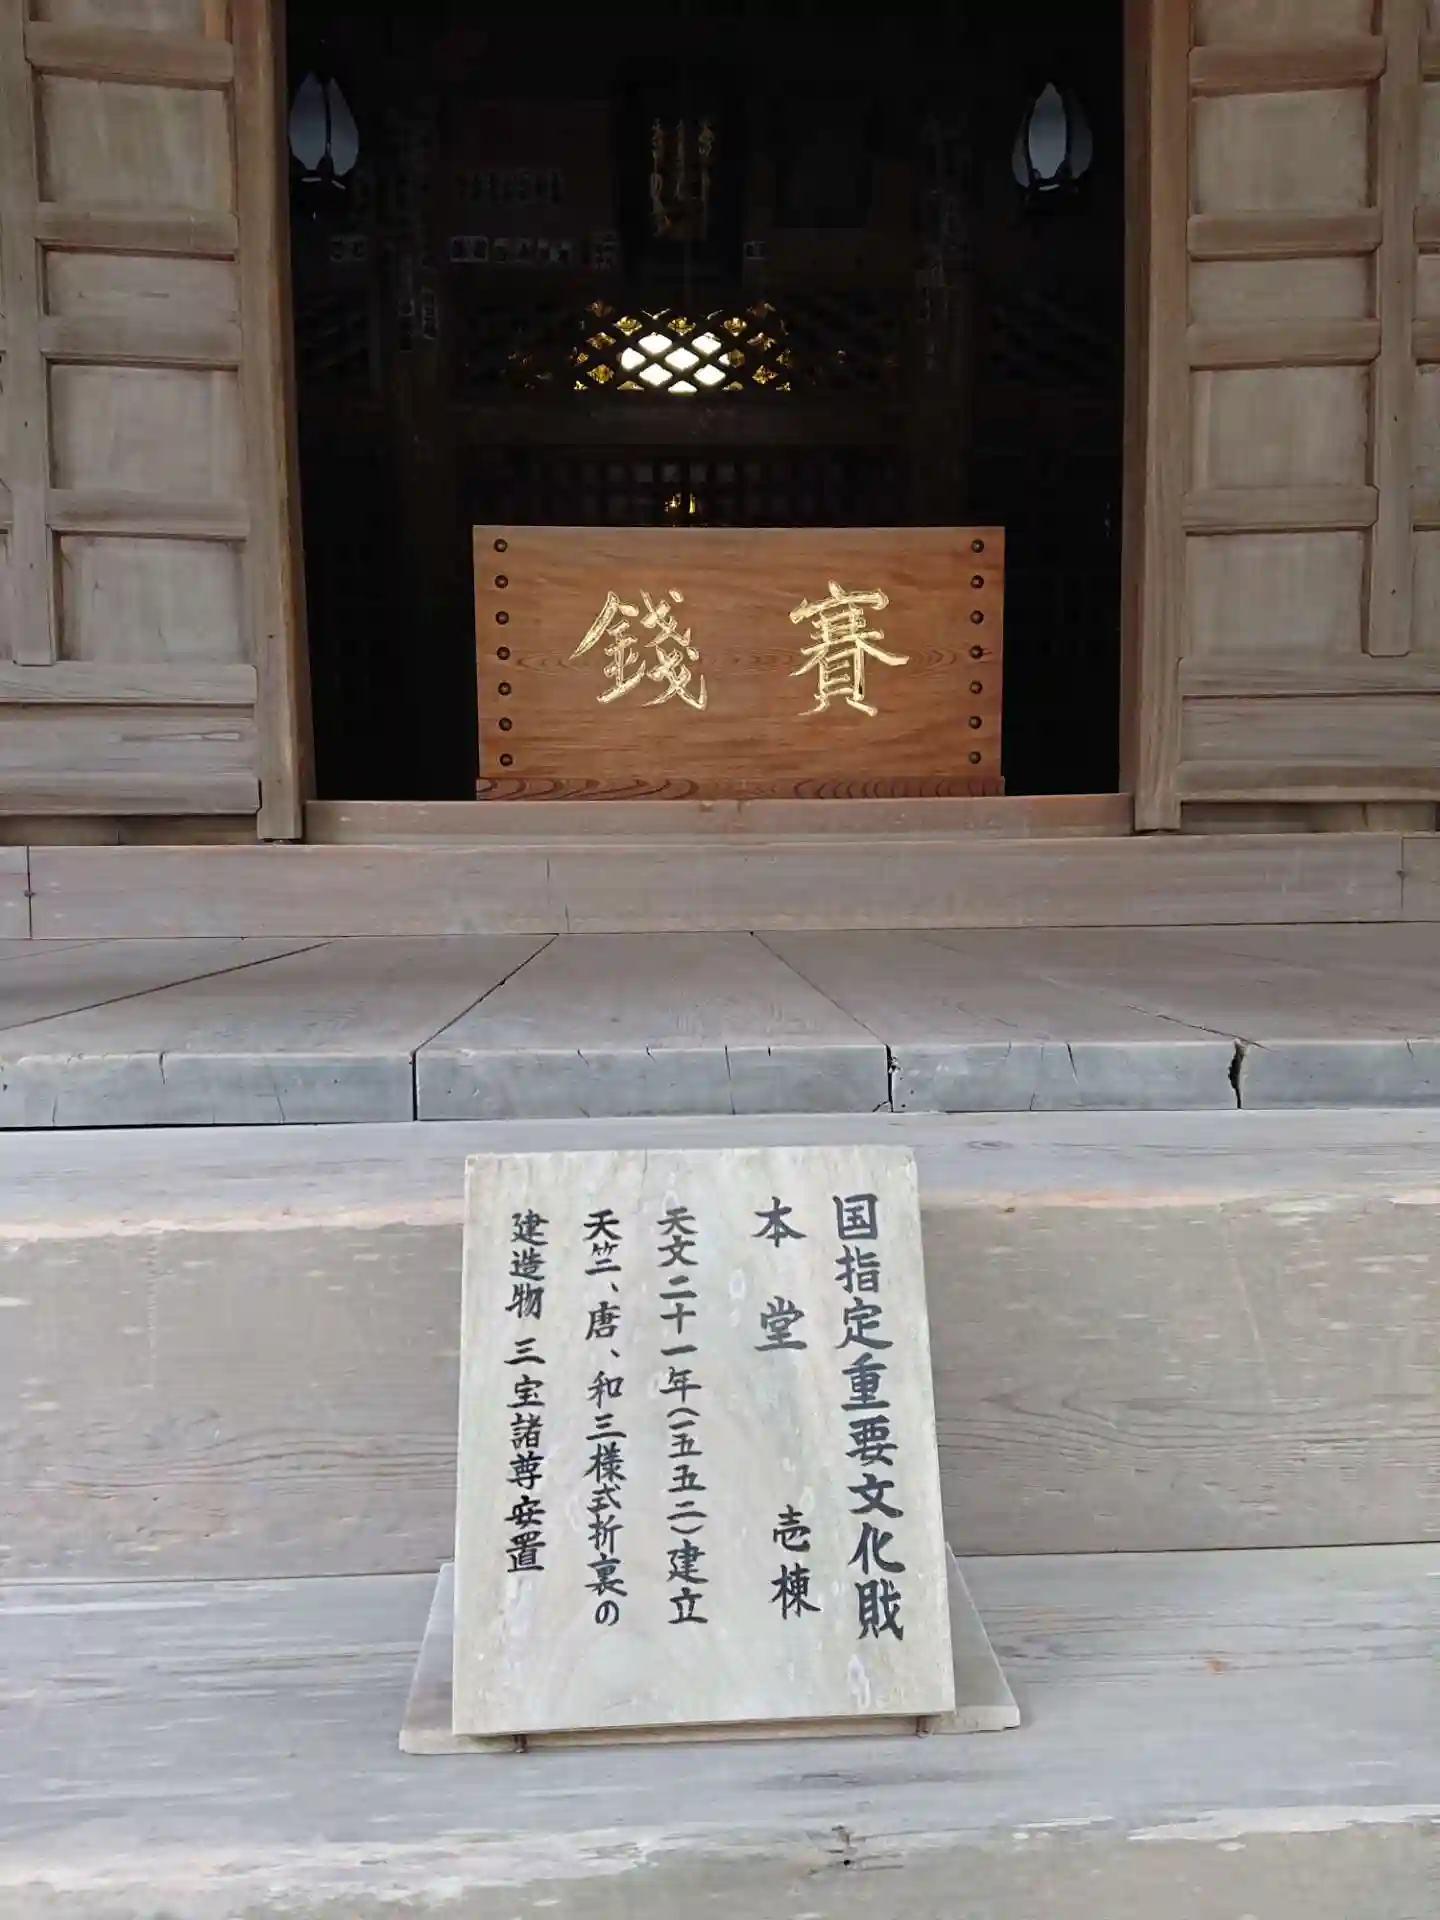 賽錢
国指定重要文化財
本堂 壱棟
天文二十一年(一五五二)建立
天竺、唐、和三様式折裏の
建造物 三宝諸尊安置